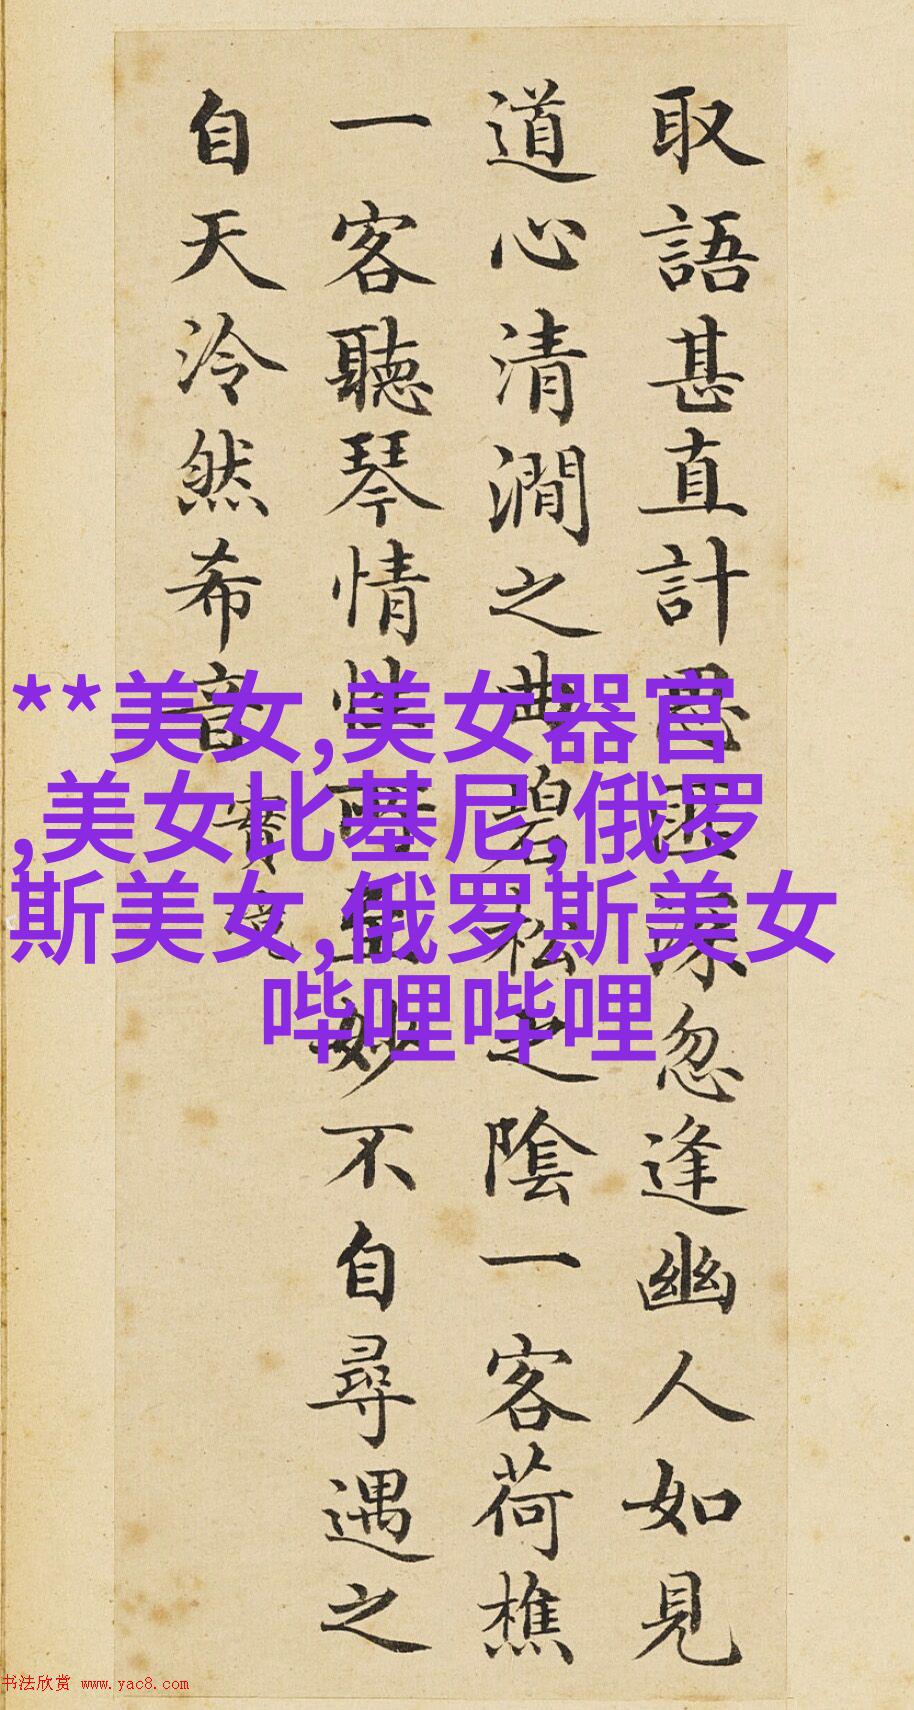 取語甚直計思匪深忽逢幽人如見
道心清澗之曲碧松之陰一客荷樵
一客聽琴情性所至妙不自尋遇之
自天泠然希音
實境
**美女,美女器官
,美女比基尼,俄罗
斯美女,俄罗斯美女
哔哩哔哩
书法欣赏 www.yac8.com